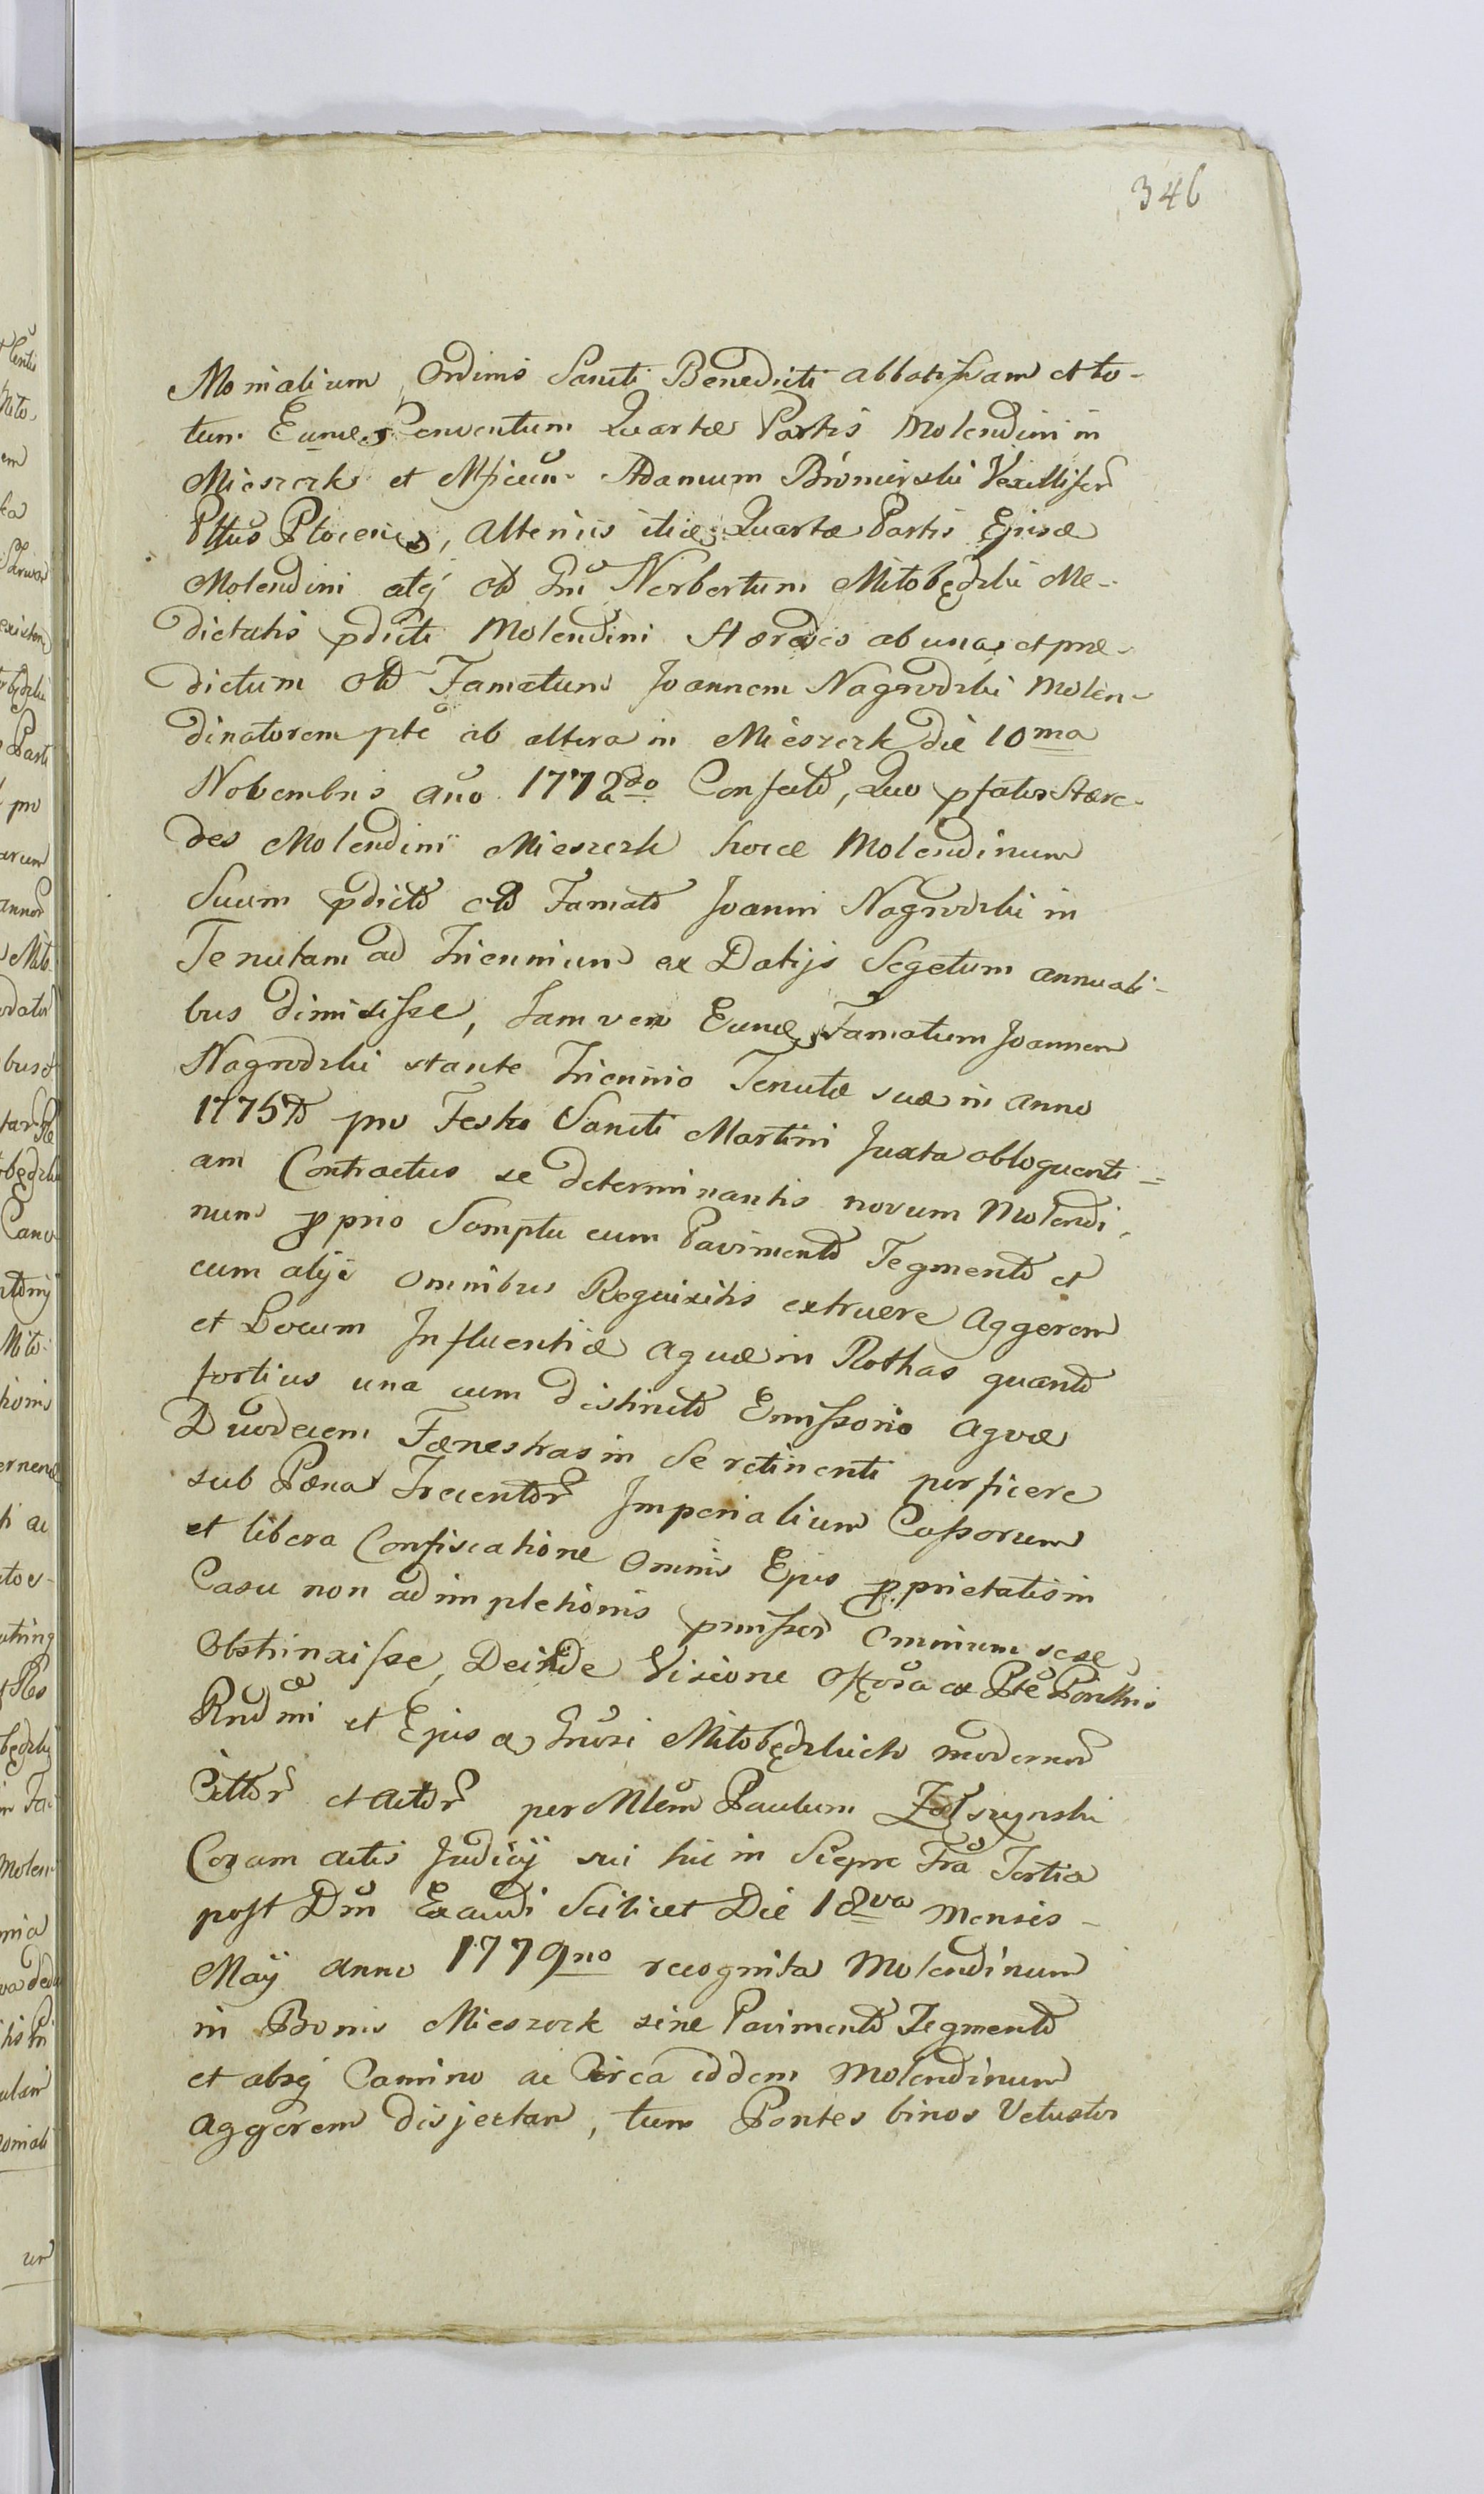 346
Monialium Ordinis Sancti Benedicti abbatissam et to-
tum Eumdem Conventum Quartæ Partis Molendini in
Mieszczk et Mficum Adamum Bromirski Vexilliferũ
Pttus Plocen, Alterius itidem Quartæ Partis Ejusd
Molendini atq̃ olĩ Gnm Norbertum Miłobędzki Me-
dietatis pdicti Molendini Hæredes ab una, et præ-
dictum olĩ Famatum Joannem Nagrodzki Molen-
dinatorem pte ab altera in Mieszczk die 10ma
Novembris año 1772do Confecto, Quo pfatos Hære-
des Molendini Mieszczk hocce Molendinum
Suum pdicto olĩ Famato Joanni Nagrodzki in
Tenutam ad Triennium ex Datijs Segetum annuali-
bus dimisisse, Jam vero Eumdem Famatum Joannem
Nagrodzki stante Triennio Tenutæ suæ in anno
1775to pro Festo Sancti Martini Juxta obloquenti-
am Contractus se determinantis novum Molendi-
num pprio Somptu cum Pavimento Tegmento et
cum alijs omnibus Requisitis extruere Aggerem
et Locum Influentiæ Aquæ in Rothas quanto
fortius una cum distincto Emissorio Aquæ
Duodecem Fænestras in Se retinenti perficere
sub Pæna Trecentor Imperialium Cassorum
et libera Confiscatione Omnis Ejus pprietatis in
Casu non adimpletionis pmissor Omnium sese
Obstrinxisse, Deinde Visione ex Pte
Rndmi et Miłobędzkich modernor
Cittor et Actor per Mlem Paulum
Coram actis Judicij sui hic in Sierpc Fra Tertia
post Dnm Exaudi Scilicet Die 18va mensis
Maij anno 1779no recognita Molendinum
in Bonis Mieszczk sine Pavimento Tegmento
et absq̃ Camino ac Circa iddem Molendinum
Aggerem disjectam, tum Pontes binos Vetustos